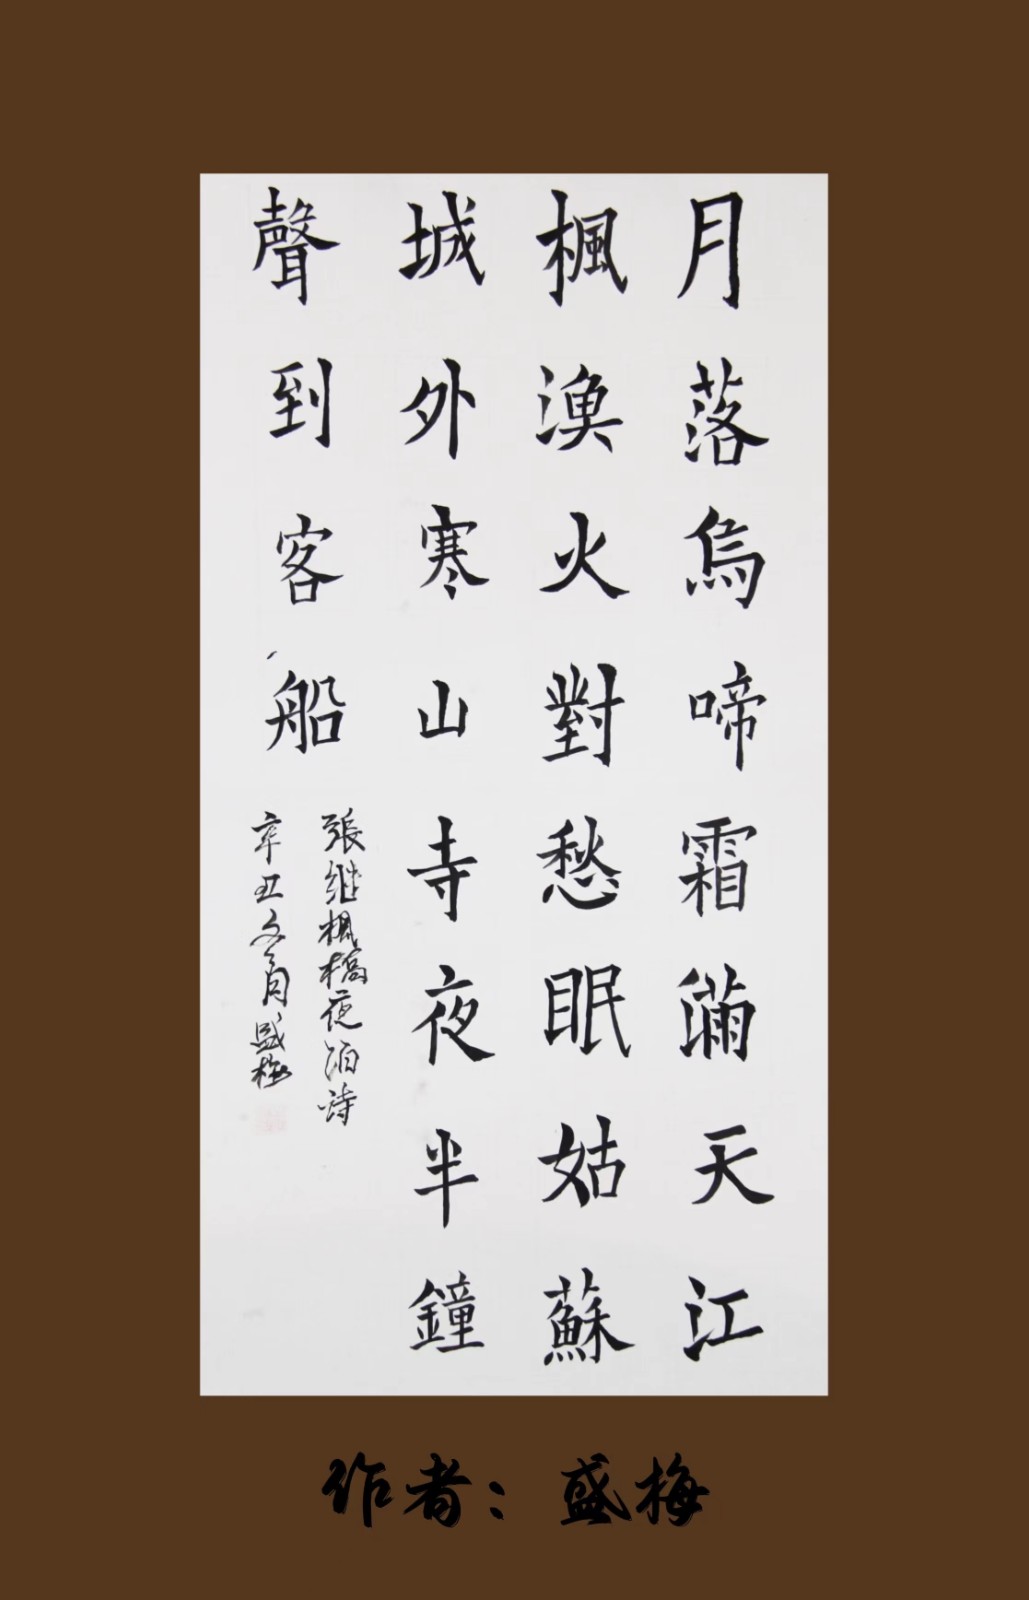 月落烏啼霜滿天江
楓漁火對愁眠姑蘇
城外寒山寺夜半鐘
聲到客船
張继楓橋夜泊詩
辛丑文月盛梅
作者：盛梅